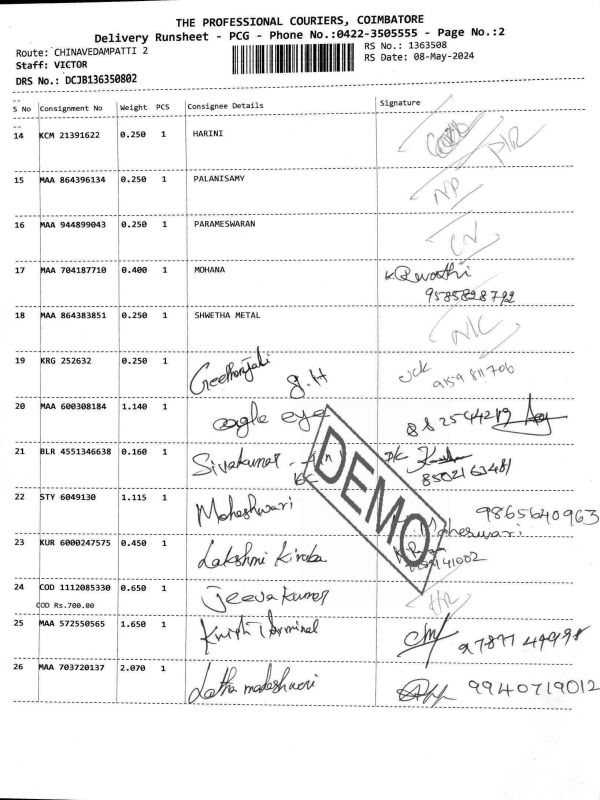 THE PROFESSIONAL COURIERS, COIMBATORE
Delivery Runsheet - PCG - Phone No.:0422-3505555 - Page No.:2
Route: CHINAVEDAMPATTI 2 RS No.: 1363508
Staff: VICTOR RS Date: 08-May-2024
DRS No.: DCJB136350802
S No Consignment No Weight PCS Consignee Details Signature
14 KCM 21391622 0.250 1 HARINI
15 MAA 864396134 0.250 1 PALANISAMY NP
16 MAA 944899043 0.250 1 PARAMESWARAN CN
17 MAA 704187710 0.400 1 MOHANA
9585828792
18 MAA 864383851 0.250 1 SHWETHA METAL N/C
19 KRG 252632 0.250 1 Geethanjali g.H
9159811706
20 MAA 600308184 1.140 1 eagle eye 8825442219
21 BLR 4551346638 0.160 1 Sivakumar
8502163481
22 STY 6049130 1.115 1 Maheshwari Maheswari 9865640963
23 KUR 6000247575 0.450 1 Lakshmi Kiruba
24 COD 1112085330 0.650 1 Jeeva kumar
COD Rs.700.00
25 MAA 572550565 1.650 1
26 MAA 703720137 2.070 1 Latha maheshweri 9940719012
DEMO